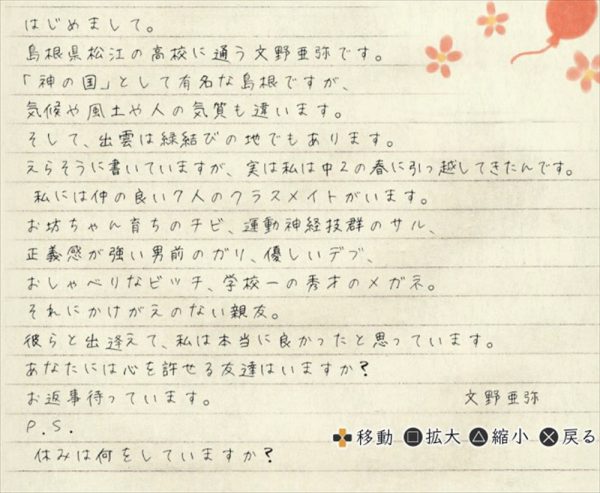 はじめまして。
島根県松江の高校に通う文野亜弥です。
「神の国」として有名な島根ですが、
気候や風土や人の気質も違います。
そして、出雲は縁結びの地でもあります。
えらそうに書いていますが、実は私は中2の春に引っ越してきたんです。
私には仲の良い7人のクラスメイトがいます。
お坊ちゃん育ちのチビ、運動神経抜群のサル、
正義感が強い男前のガリ、優しいデブ、
おしゃべりなビッチ、学校一の秀才のメガネ。
それにかけがえのない親友。
彼らと出逢えて、私は本当に良かったと思っています。
あなたには心を許せる友達はいますか?
お返事待っています。 文野亜弥
P.S.
休みは何をしていますか?
移動 拡大 縮小 戻る